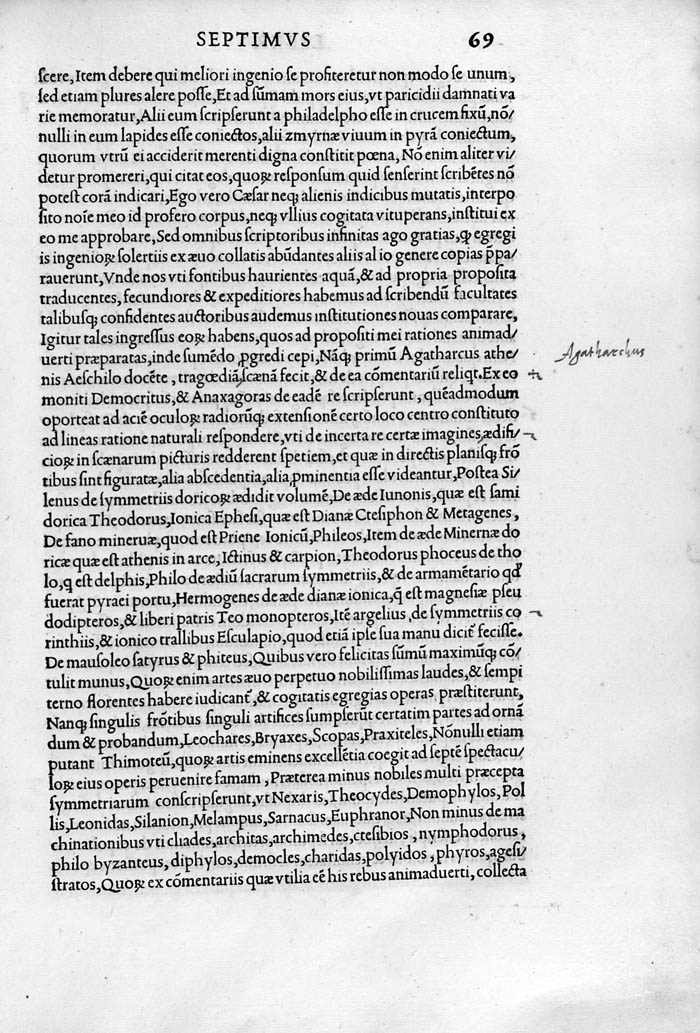 SEPTIMVS 69
ſcere, Item debere qui meliori ingenio ſe profiteretur non modo ſe unum,
ſed etiam plures alere poſſe, Et ad ſūmam mors eius, vt paricidii damnati va
rie memoratur, Alii eum ſcripſerunt a philadelpho eſſe in crucem fixū, nō/
nulli in eum lapides eſſe coniectos, alii zmyrnæ viuum in pyrā coniectum,
quorum vtrū ei acciderit merenti digna conſtitit pœna, Nō enim aliter vi/
detur promereri, qui citat eos, quoꝝ reſponſum quid ſenſerint ſcribētes nō
poteſt corā indicari, Ego vero Cæſar neqꝫ alienis indicibus mutatis, interpo
ſito noīe meo id profero corpus, neqꝫ vllius cogitata vituperans, inſtitui ex
eo me approbare, Sed omnibus ſcriptoribus infinitas ago gratias, ꝙ egregi
is ingenioꝝ ſolertiis ex æuo collatis abūdantes aliis al io genere copias p̄pa/
rauerunt, Vnde nos vti fontibus haurientes aquā, & ad propria propoſita
traducentes, fecundiores & expeditiores habemus ad ſcribendū facultates
talibuſqꝫ confidentes auctoribus audemus inſtitutiones nouas comparare,
Igitur tales ingreſſus eoꝝ habens, quos ad propoſiti mei rationes animad/
uerti præparatas, inde ſumēdo ꝓgredi cepi, Nāqꝫ primū Agatharcus athe/
Agatharchus
nis Aeſchilo docēte, tragœdiā, ſcænā fecit, & de ea cōmentariū reliqt. Ex eo
moniti Democritus, & Anaxagoras de eadē re ſcripſerunt, quēadmodum
oporteat ad aciē oculoꝝ radiorūqꝫ extenſionē certo loco centro conſtituto
ad lineas ratione naturali reſpondere, vti de incerta re certæ imagines, ædifi/
cioꝝ in ſcænarum picturis redderent ſpetiem, et quæ in directis planiſqꝫ frō
tibus ſint figuratæ, alia abſcedentia, alia, ꝓminentia eſſe videantur, Poſtea Si/
lenus de ſymmetriis doricoꝝ ædidit volumē, De æde Iunonis, quæ eſt ſami
dorica Theodorus, Ionica Epheſi, quæ eſt Dianæ Cteſiphon & Metagenes,
De fano mineruæ, quod eſt Priene Ionicū, Phileos, Item de æde Minernæ do
ricæ quæ eſt athenis in arce, Ictinus & carpion, Theodorus phoceus de tho
lo, q̄ eſt delphis, Philo de ædiū ſacrarum ſymmetriis, & de armamētario qđ
fuerat pyraei portu, Hermogenes de æde dianæ ionica, q̄ eſt magneſiæ pſeu
dodipteros, & liberi patris Teo monopteros, Itē argelius, de ſymmetriis co
rinthiis, & ionico trallibus Eſculapio, quod etiā ipſe ſua manu dicit̄ feciſſe.
De mauſoleo ſatyrus & phiteus, Quibus vero felicitas ſūmū maximūqꝫ cō/
tulit munus, Quoꝝ enim artes æuo perpetuo nobiliſſimas laudes, & ſempi
terno florentes habere iudicant̄, & cogitatis egregias operas præſtiterunt,
Nanqꝫ ſingulis frōtibus ſinguli artifices ſumpſerūt certatim partes ad ornā
dum & probandum, Leochares, Bryaxes, Scopas, Praxiteles, Nōnulli etiam
putant Thimoteū, quoꝝ artis eminens excellētia coegit ad ſeptē ſpectacu/
loꝝ eius operis peruenire famam, Præterea minus nobiles multi præcepta
ſymmetriarum conſcripſerunt, vt Nexaris, Theocydes, Demophylos, Pol
lis, Leonidas, Silanion, Melampus, Sarnacus, Euphranor, Non minus de ma
chinationibus vti cliades, architas, archimedes, cteſibios, nymphodorus,
philo byzanteus, diphylos, democles, charidas, polyidos, phyros, ageſi/
ſtratos, Quoꝝ ex cōmentariis quæ vtilia eē his rebus animaduerti, collecta